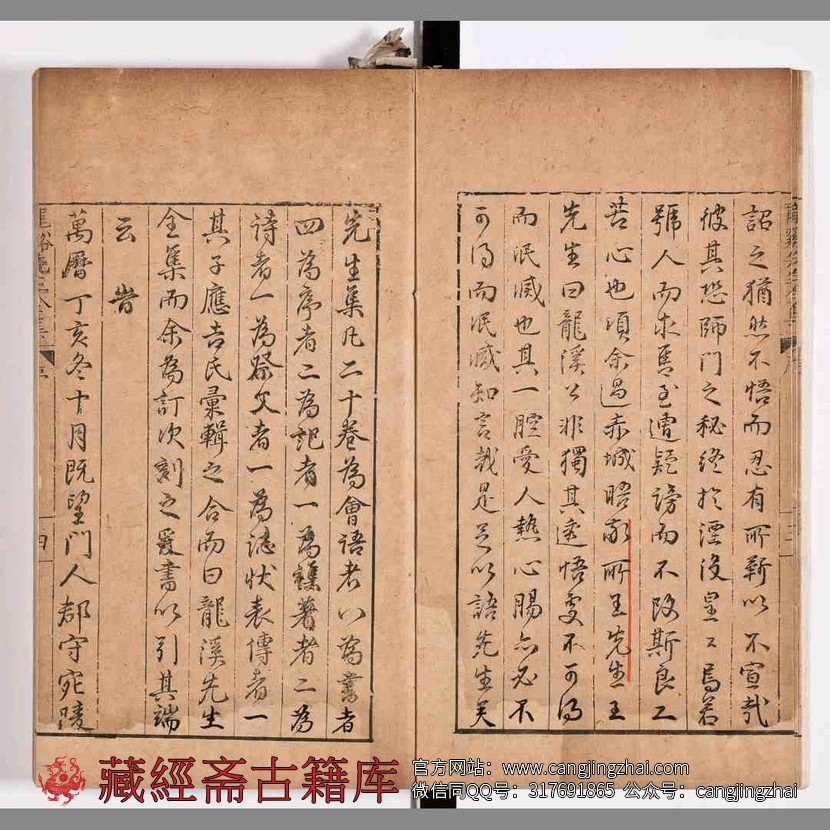 詔之猶然不悟而忍有所靳以不宣哉
彼其恐師門之秘終於湮没皇〻焉若
號人而求售至遭疑謗而不改斯良工
苦心也頃余過赤城晤敬所王先生王
先生曰龍溪公非獨其透悟處不可得
而泯滅也其一腔愛人熱心腸亦必不
可得而泯滅知言哉是足以語先生矣
先生集凡二十卷為會語者八為書者
四為序者二為記者一為襍著者二為
詩者一為祭文者一為誌狀表傳者一
其子應吉氏彙輯之合而曰龍溪先生
全集而余為訂次刻之爰書以引其端
云 時
萬曆丁亥冬十月既望門人郡守宛陵
四
藏經斋古籍库
官方网站：www.cangjingzhai.com
微信同QQ号：317691865 公众号：cangjingzhai